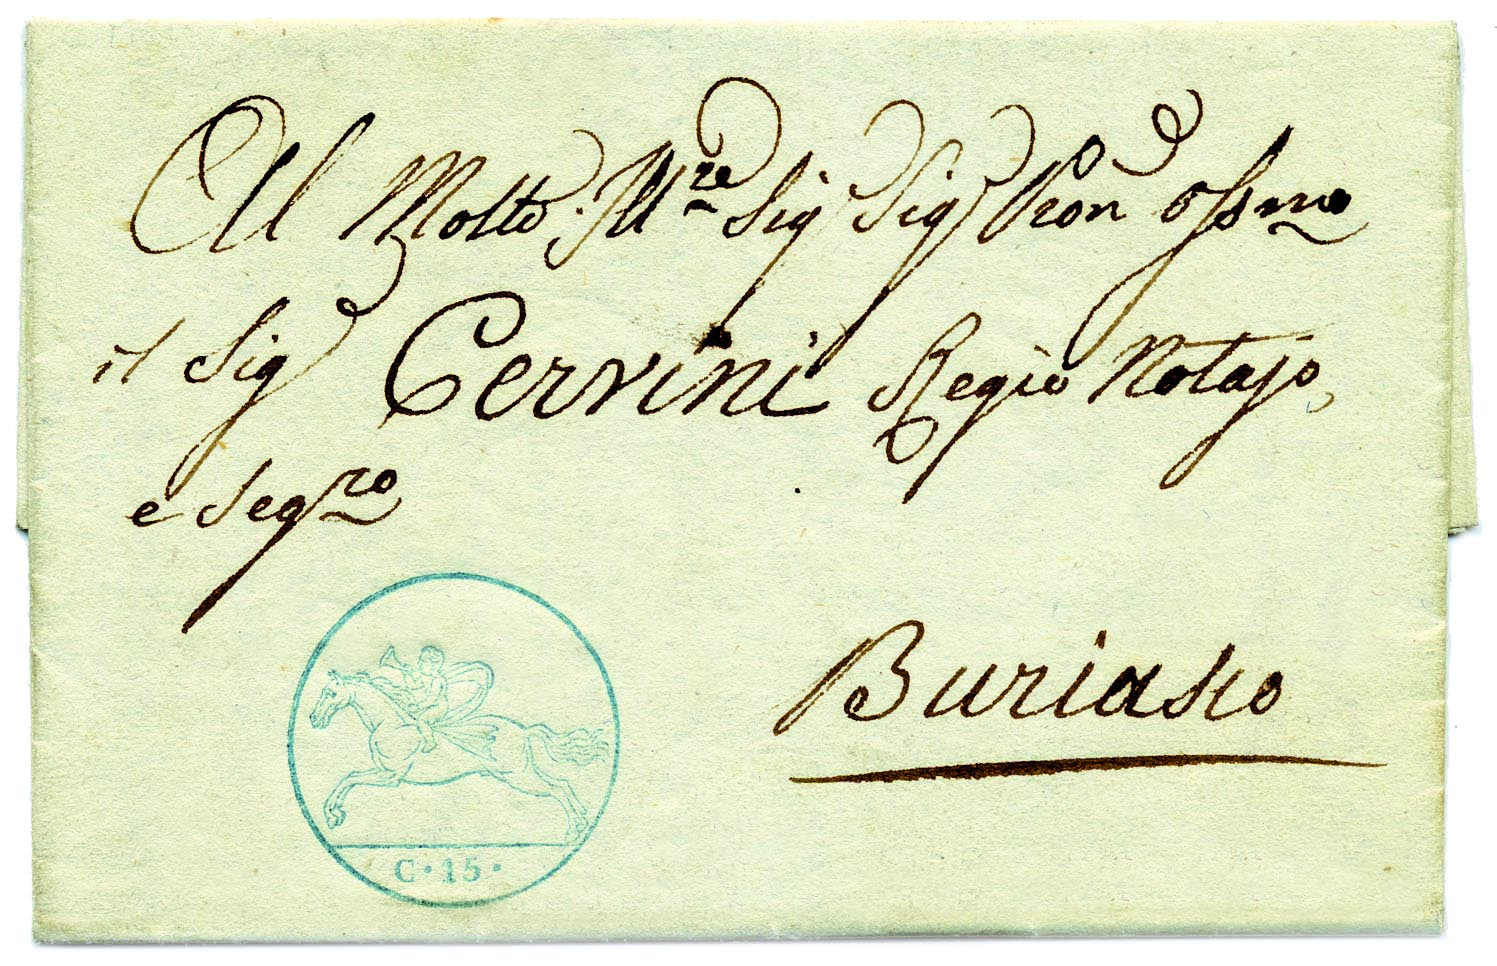 Al Molto Ill.re Sig Sig Pron ossmo
il Sig Cervini Regio Notajo,
e Segro
Buriasco
C·15·